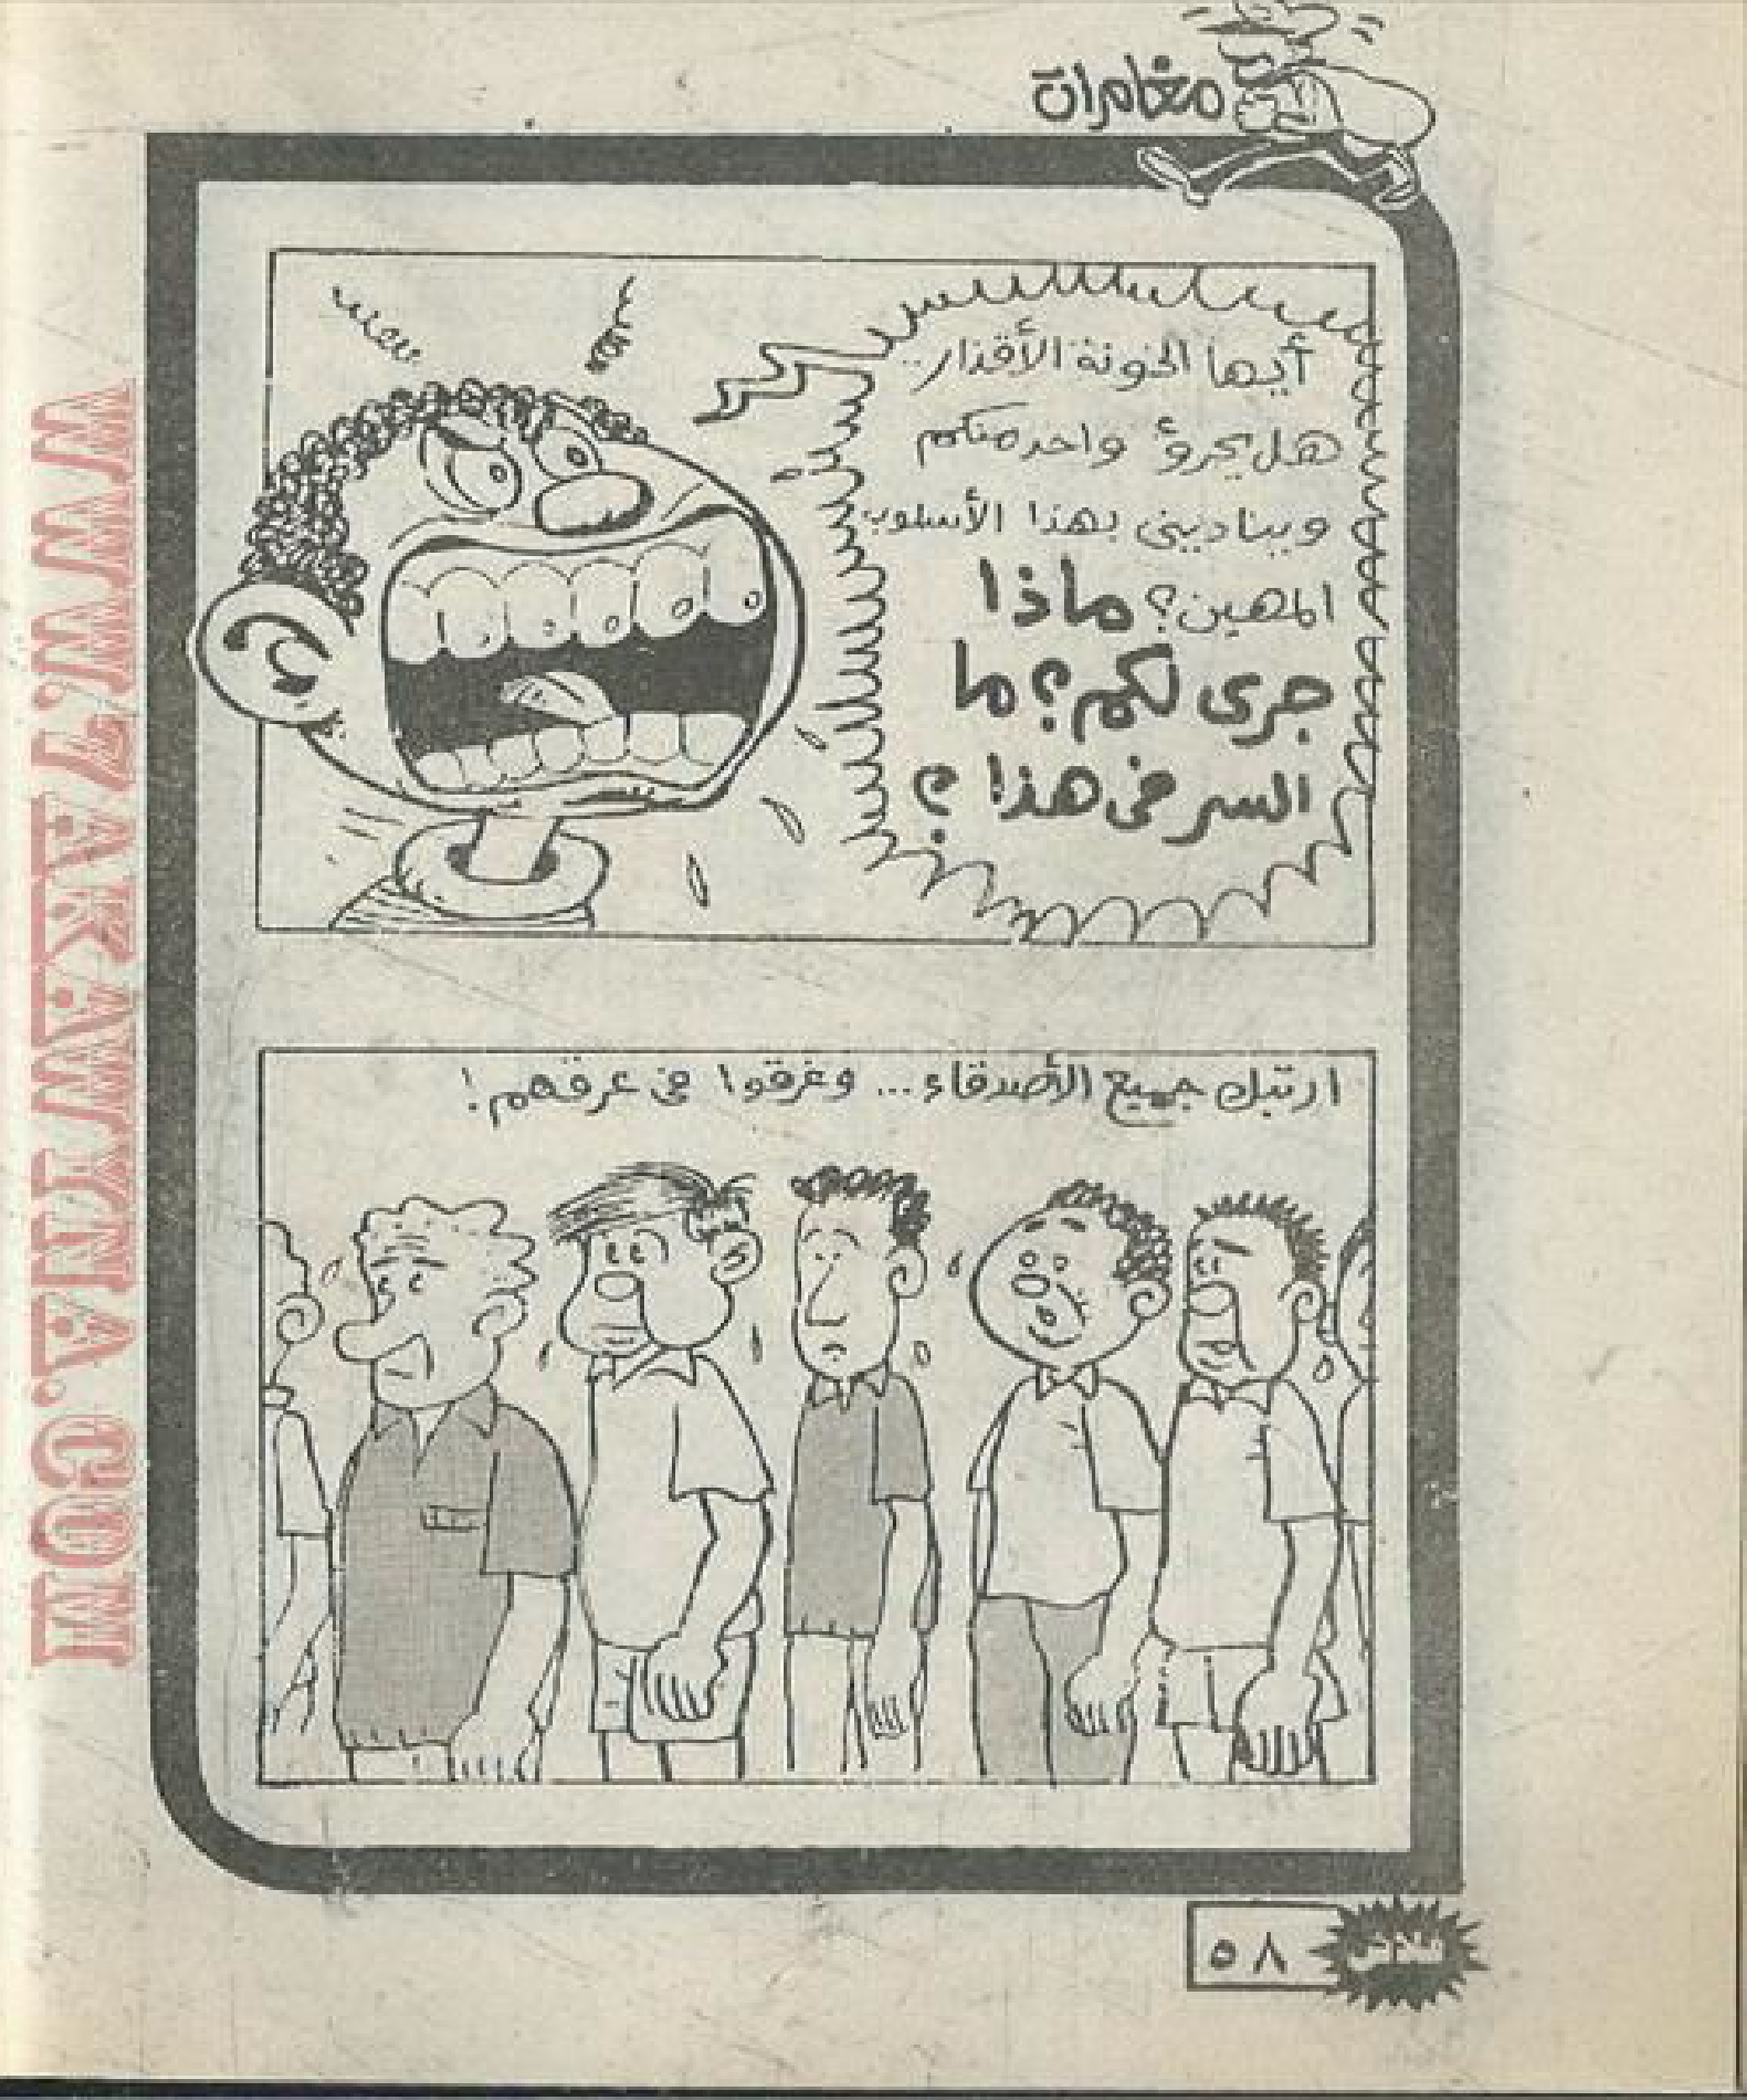 مغامرات
أيها الخونة الأقذار..
هل يجرؤ واحد منكم
ويناديني بهذا الأسلوب
المهين؟ ماذا
جرى لكم؟ ما
السر في هذا؟
ارتبك جميع الأصدقاء... وغرقوا في عرقهم!
٥٨
WWW.7AKAWINA.COM